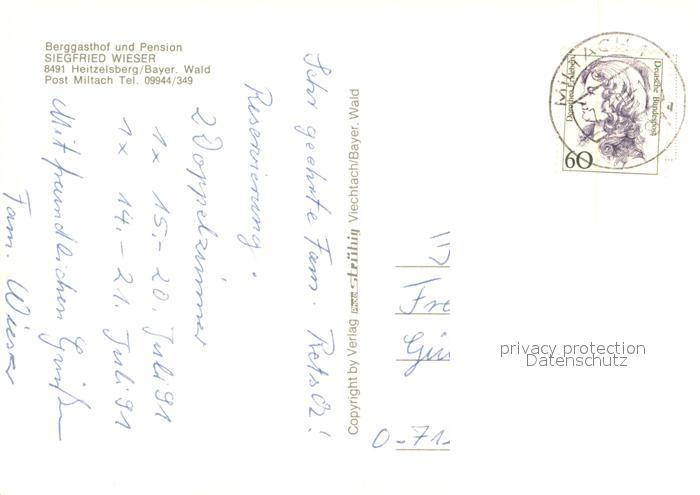 Berggasthof und Pension
SIEGFRIED WIESER
8491 Heitzelsberg/Bayer. Wald
Post Miltach Tel. 09944/349
Sehr geehrte Fam.
Reservierung.
2 Doppelzimmer
1x 15.-20. Juli 91
1x 14.-21. Juli 91
Mit freundlichen Grüßen
Fam. Wieser
Copyright by Verlag Strühin Viechtach/Bayer. Wald
Deutsche Bundespost
Dorothea Erxleben
60
Fre
Gü
O-71-
privacy protection
Datenschutz